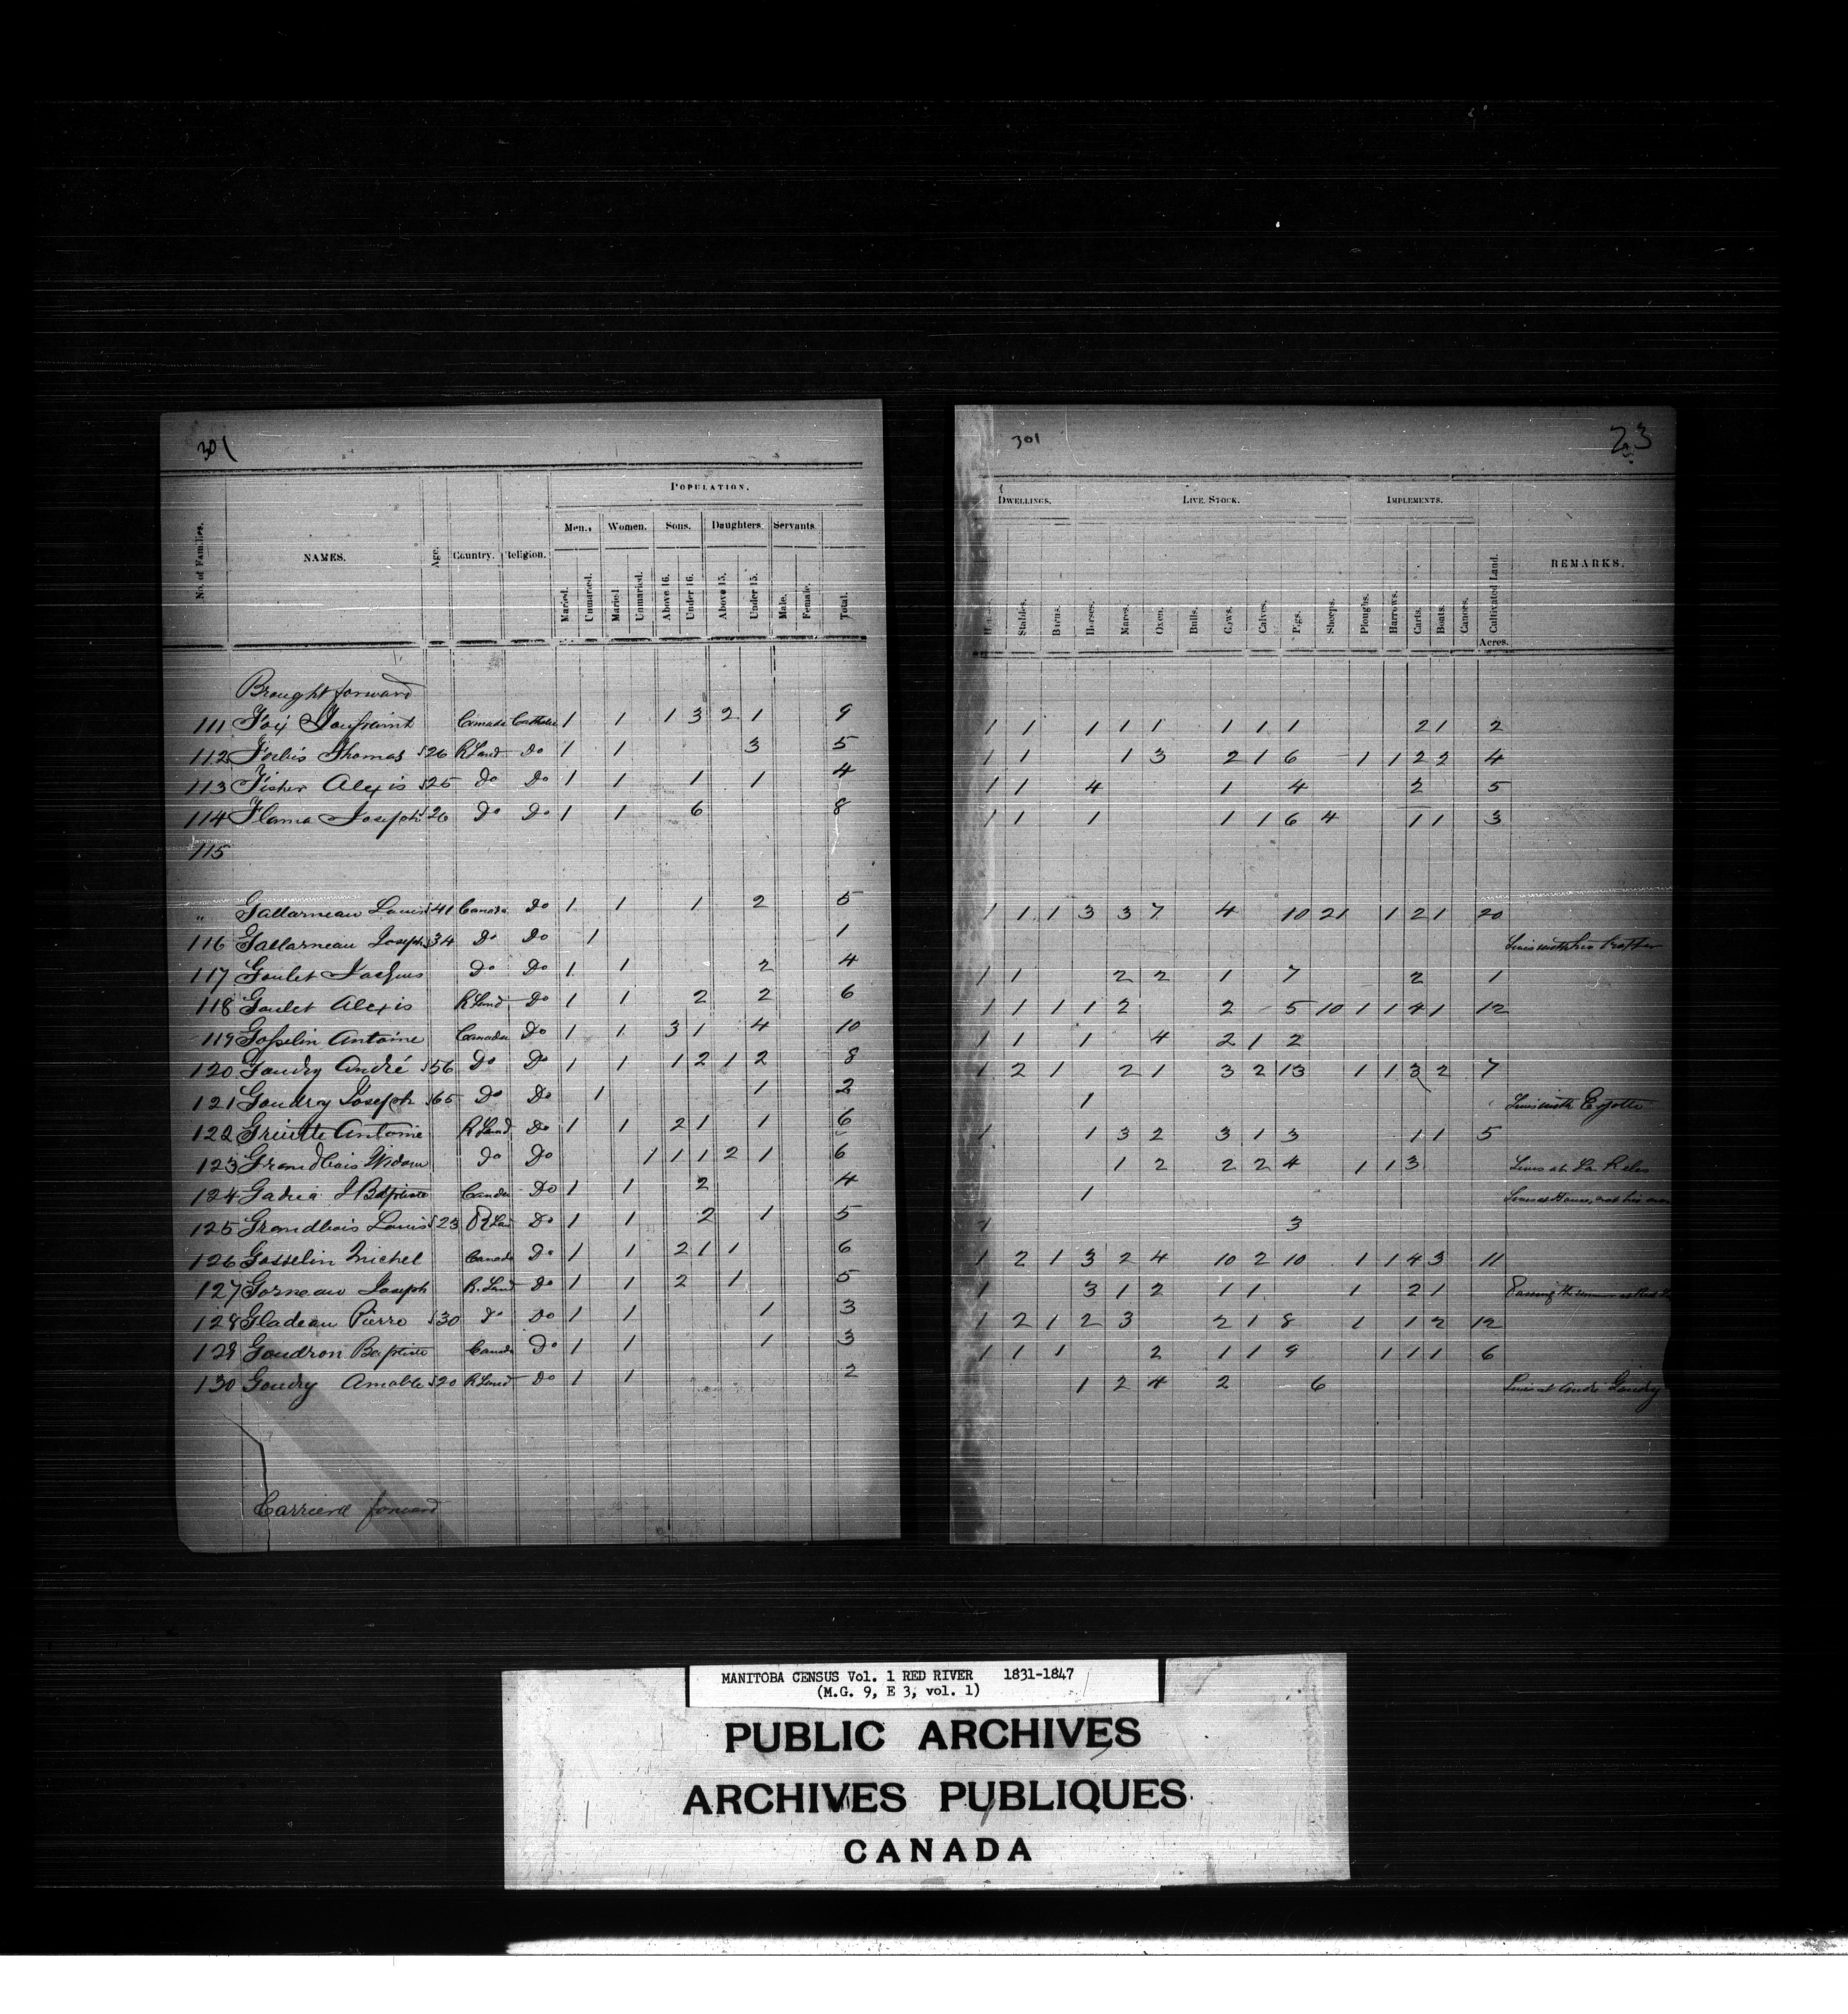 301
POPULATION.
Men. Women. Sons. Daughters. Servants.
No. of Families. NAMES. Age. Country. Religion. Maried. Unmaried. Maried. Unmaried. Above 16. Under 16. Above 15. Under 15. Male. Female. Total.
Brought forward
111 Canada Catholic 1 1 1 3 2 1 9
112 Thomas 26 R Land Do 1 1 3 5
113 Fisher Alexis 25 Do Do 1 1 1 1 4
114 Joseph 26 Do Do 1 1 6 8
115
" Gallarneau Louis 41 Canada Do 1 1 1 2 5
116 Gallarneau Joseph 34 Do Do 1 1
117 Goulet Do Do 1 1 2 4
118 Goulet Alexis R Land Do 1 1 2 2 6
119 Gosselin Antoine Canada Do 1 1 3 1 4 10
120 Gaudry André 56 Do Do 1 1 1 2 1 2 8
121 Joseph 65 Do Do 1 1 2
122 Antoine R Land Do 1 1 2 1 1 6
123 Grandbois Widow Do Do 1 1 1 2 1 6
124 J Bptiste Canada Do 1 1 2 4
125 Grandbois Louis 23 R Lan Do 1 1 2 1 5
126 Gosselin Michel Canada Do 1 1 2 1 1 6
127 Gorneau Joseph R. Land Do 1 1 2 1 5
128 Gladeau Pierre 30 Do Do 1 1 1 3
129 Goudron Baptiste Canada Do 1 1 1 3
130 Goudry Amable 20 R Land Do 1 1 2
Carrierd forward
301 23
DWELLINGS. LIVE STOCK. IMPLEMENTS.
Stables. Barns. Horses. Mares. Oxen. Bulls. Cows. Calves. Pigs. Sheeps. Ploughs. Harrows. Carts. Boats. Canoes. Cultivated Land. REMARKS.
Acres.
1 1 1 1 1 1 1 1 2 1 2
1 1 1 3 2 1 6 1 1 2 2 4
1 1 4 1 4 2 5
1 1 1 1 1 6 4 1 1 3
1 1 1 3 3 7 4 10 21 1 2 1 20
Lives with his brother
1 1 2 2 1 7 2 1
1 1 1 1 2 2 5 10 1 1 4 1 12
1 1 1 4 2 1 2
1 2 1 2 1 3 2 13 1 1 3 2 7
1 Lives with
1 1 3 2 3 1 3 1 1 5
1 2 2 2 4 1 1 3 Lives at
1
1 3
1 2 1 3 2 4 10 2 10 1 1 4 3 11
1 3 1 2 1 1 1 2 1
1 2 1 2 3 2 1 8 1 1 2 12
1 1 1 2 1 1 9 1 1 1 6
1 2 4 2 6 Lives at André Gaudry
MANITOBA CENSUS Vol. 1 RED RIVER 1831-1847
(M.G. 9, E 3, vol. 1)
PUBLIC ARCHIVES
ARCHIVES PUBLIQUES
CANADA